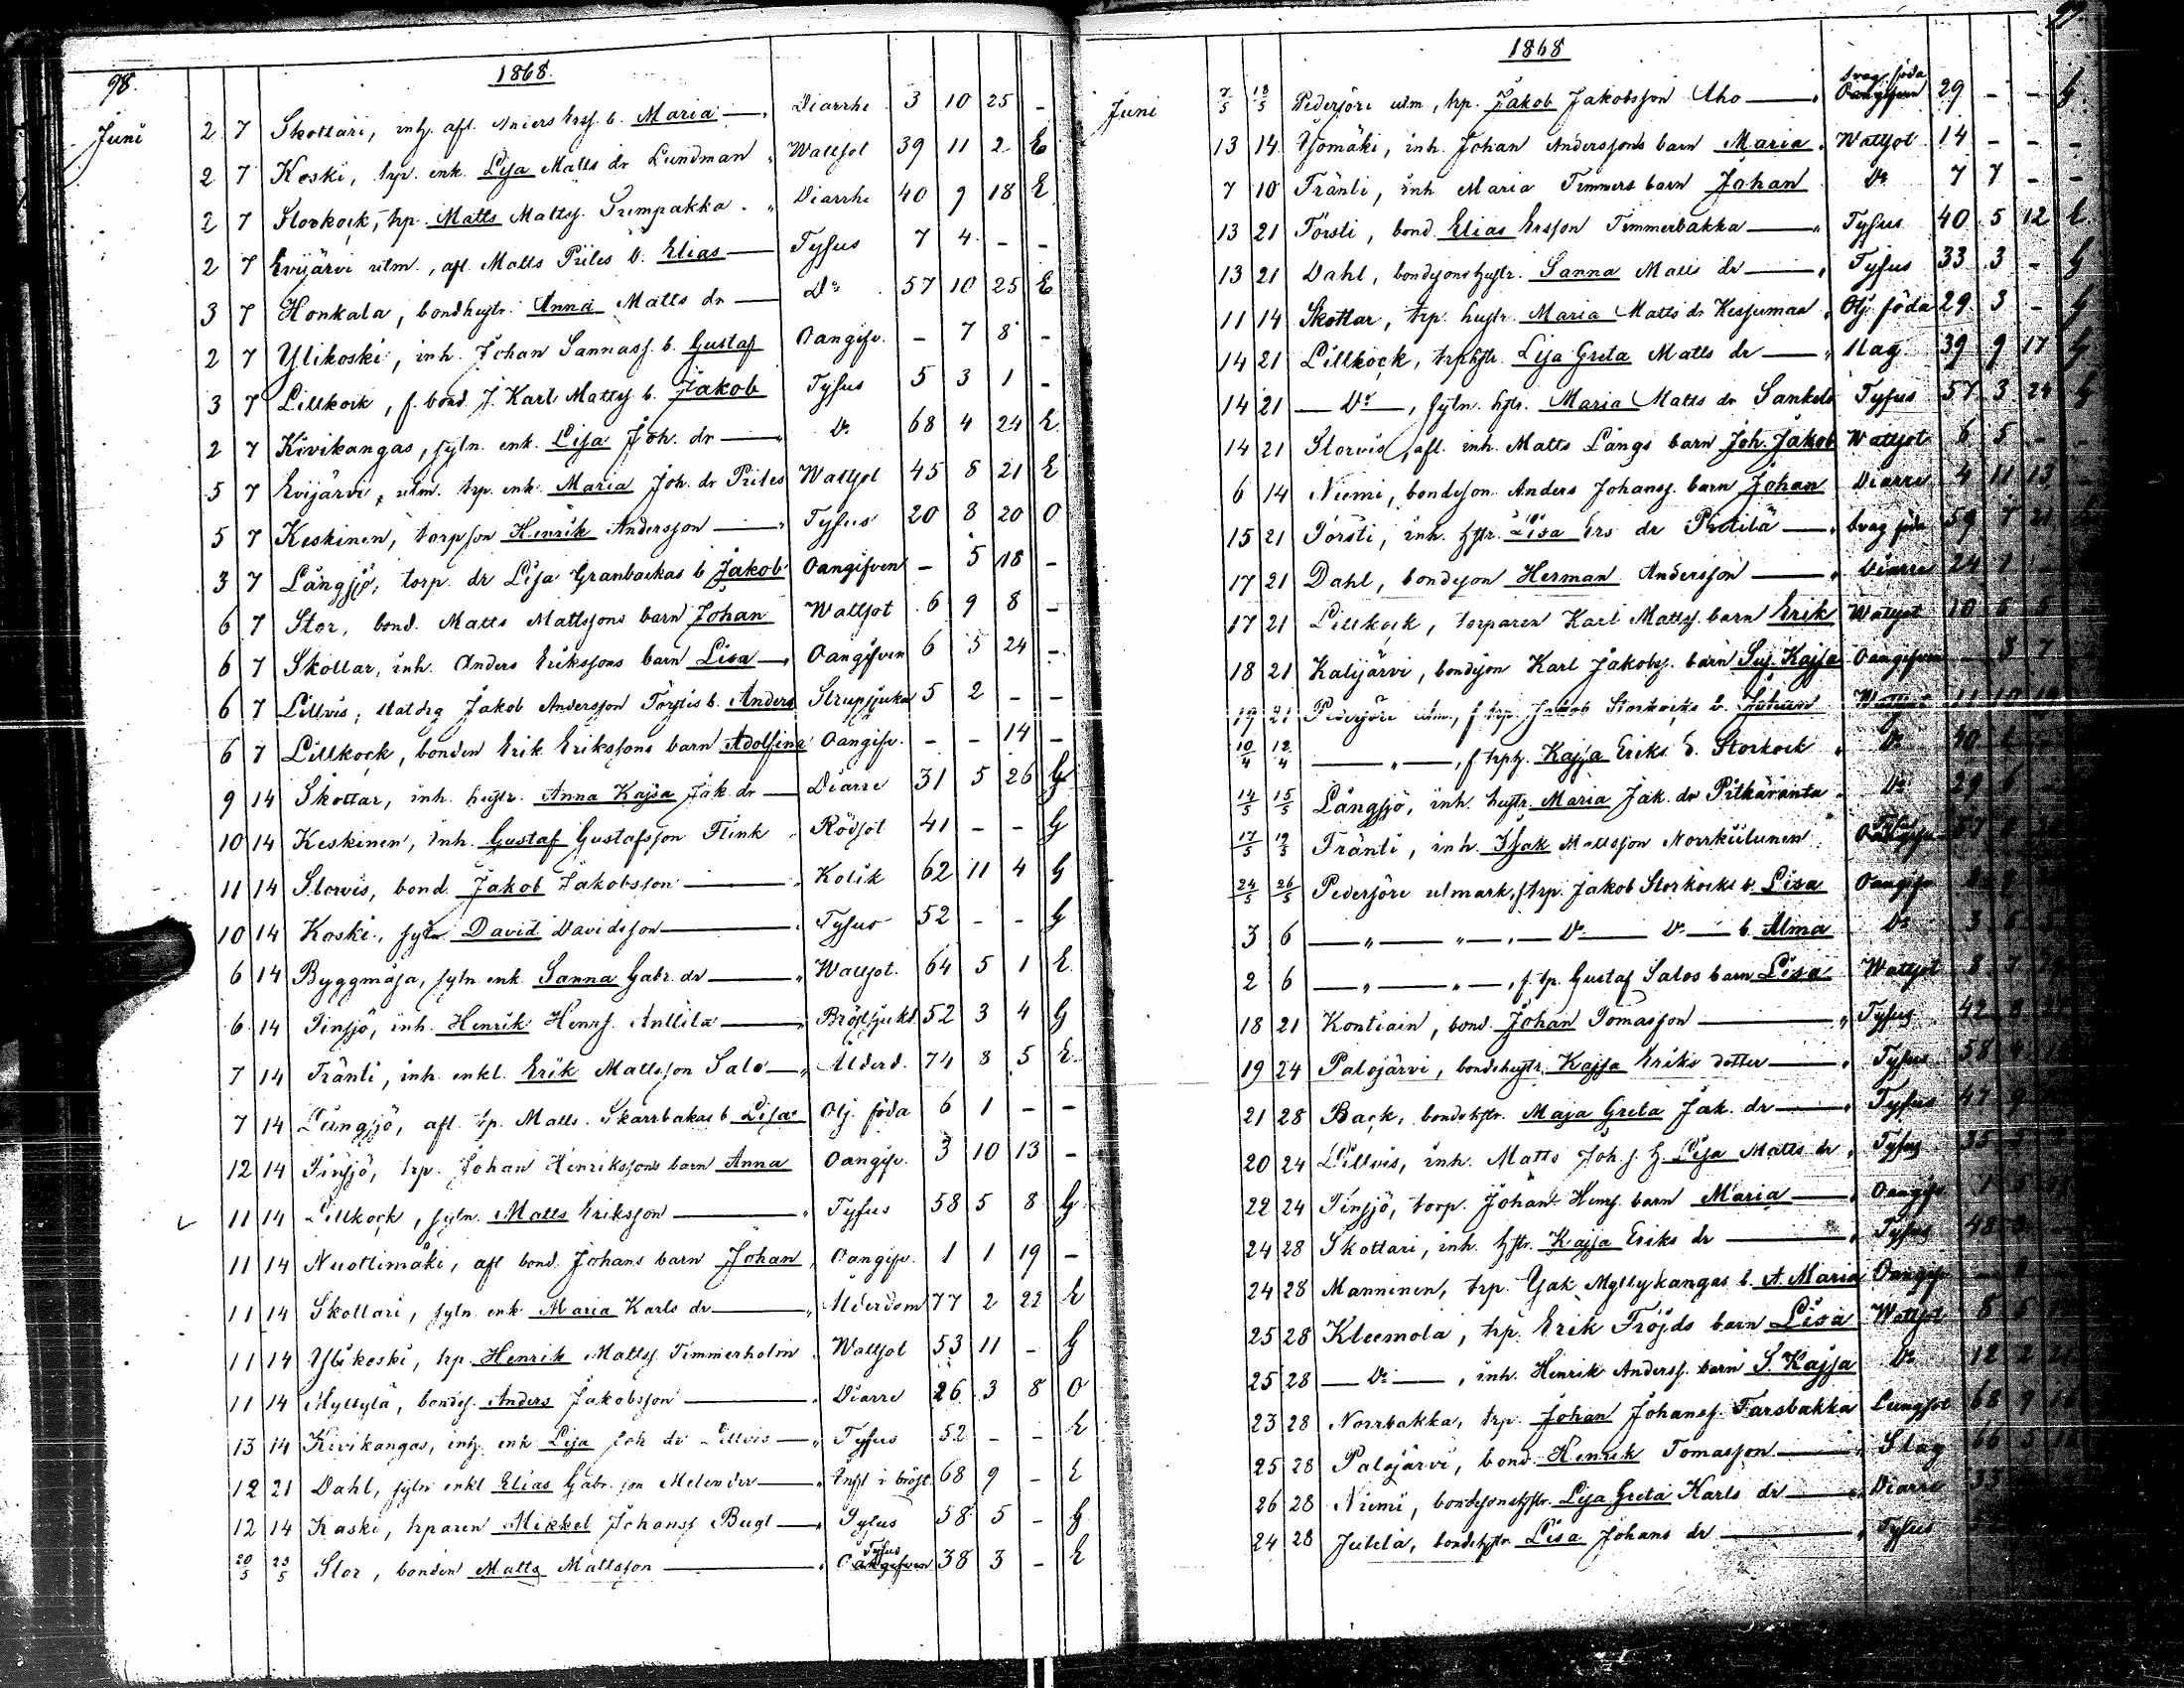 98.
1868.
Juni 2 7 Skottari, inh. afl. Anders Erss. b. Maria — Diarrhe 3 10 25 -
2 7 Koski, trp. enk. Lisa Matts dr Lundman " Wattsot 39 11 2 E
2 7 Storkock, trp. Matts Matts. " Diarrhe 40 9 18 E
2 7 Evijärvi utm., afl. Matts Piiles b. Elias — Tyfus 7 4 - -
3 7 Honkala, bondhustr. Anna Matts dr — Do 57 10 25 E
2 7 Ylikoski, inh. Johan Sannass. b. Gustaf Oangifv. - 7 8 -
3 7 Lillkock, f. bond. J. Karl Matts. b. Jakob Tyfus 5 3 1 -
2 7 Kivikangas, sytn. enk. Lisa Joh. dr — Do 68 4 24 E
5 7 Evijärvi, utm. trp. enk. Maria Joh. dr Piiles Wattsot 45 8 21 E
5 7 Keskinen, torpson Henrik Andersson — Tyfus 20 8 20 O
3 7 Långsjö, torp. dr Lisa Granbackas b Jakob Oangifven - 5 18 -
6 7 Stor, bond. Matts Mattssons barn Johan Wattsot 6 9 8 -
6 7 Skottar, inh. Anders Erikssons barn Lisa — Oangifven 6 5 24 -
6 7 Lillvis, Jakob Andersson b. Anders Strupsjuka 5 2 - -
6 7 Lillkock, bonden Erik Erikssons barn Adolfina Oangifv. - - 14 -
9 14 Skottar, inh. hustr. Anna Kajsa Jak. dr — Diarre 31 5 26 G
10 14 Keskinen, Inh. Gustaf Gustafsson Flink Rödsot 41 - - G
11 14 Storvis, bond. Jakob Jakobsson — Kolik 62 11 4 G
10 14 Koski, sytn David Davidsson — Tyfus 52 - - G
6 14 Byggmäsa, sytn. enk. Sanna Gabr. dr — " Wattsot. 64 5 1 E
6 14 Pinsjö, inh. Henrik Henrs. Anttila — Bröstsjukd. 52 3 4 G
7 14 Tränti, inh. enkl. Erik Mattsson Salo — " Ålderd. 74 8 5 E
7 14 Långsjö, afl. trp. Matts Skarrbakas b Lisa Otj. föda 6 1 - -
12 14 Pinsjö, trp. Johan Henrikssons barn Anna Oangifv. 3 10 13 -
11 14 Lillkock, sytn. Matts Eriksson — " Tyfus 58 5 8 G
11 14 Nuottimäki, afl bond. Johans barn Johan Oangifv. 1 1 19 -
11 14 Skottari, sytn. enk. Maria Karls dr — " Ålderdom 77 2 22 E
11 14 Ylikoski, trp. Henrik Matts. Timmerholm Wattsot 53 11 - G
11 14 Myllylä, bonds. Anders Jakobsson — Diarre 26 3 8 O
13 14 Kivikangas, inh. enk. Lisa Joh dr Lillvis — " Tyfus 52 - - E
12 21 Dahl, sytn enkl Elias Gabr. son Melender — " i bröst. 68 9 - E
12 14 Kaski, trparen Mikkel Johanss Bugt — " Tyfus 58 5 - G
20/5 23/5 Stor, bonden Matts Mattsson — Tyfus Oangifven 38 3 - E
1868
Juni 7/5 12/5 Pedersöre utm., trp. Jakob Jakobsson Aho — Svag föda Oangifven 29 - - G
13 14 Yömäki, inh. Johan Anderssons barn Maria Wattsot 14 - - -
7 10 Tränti, inh Maria Timmers barn Johan Do 7 7 - -
13 21 Törsti, bond. Elias Ersson Timmerbakka — " Tyfus 40 5 12 E.
13 21 Dahl, bondsonshustr. Sanna Matts dr — " Tyfus 33 3 - G
11 14 Skottar, trp. hustr. Maria Matts dr Otj. föda 29 3 - G
14 21 Lillkock, trphstr. Lisa Greta Matts dr — " Slag 39 9 17 G
14 21 — Do —, sytn. hstr. Maria Matts dr Tyfus 57 3 24 G
14 21 Storvis, afl. inh. Matts Långs barn Joh. Jakob Wattsot 6 5 - -
6 14 Niemi, bondeson Anders Johanss. barn Johan Diarre 4 11 13 -
15 21 Törsti, inh. hstr. Lisa Ers dr Pietilä — " Svag föda 59 7 21
17 21 Dahl, bondeson Herman Andersson — " Diarre 24 1
17 21 Lillkock, torparen Karl Matts. barn Erik Wattsot 10 5 5
18 21 Kalijärvi, bondeson Karl Jakobs. barn Sus. Kajsa Oangifven - 3 7
19 21 Pedersöre utm., f. trp. Jakob Storkocks b. Johan Wattsot 11 10
10/4 12/4 — " —, f. trph. Kajsa Eriks d. Storkock " Do 40
14/5 15/5 Långsjö, inh. hustr. Maria Jak. dr Pitkäranta Do 29 6
17/5 19/5 Tränti, inh. Isak Mattsson Norrkiilunen 57
24/5 26/5 Pedersöre utmark, f trp. Jakob Storkocks b. Lisa Oangifv.
3 6 — " — " — Do — Do — b. Alma Do 3
2 6 — " — " —, f. tp. Gustaf Salos barn Lisa Wattsot 8
18 21 Kontiain, bond. Johan Tomasson — " Tyfus 42 8
19 24 Palojärvi, bondehustr. Kajsa Eriks dotter — " Tyfus 58
21 28 Back, bondehstr. Maja Greta Jak. dr — " Tyfus 47 9
20 24 Lillvis, inh. Matts Joh. s. h. Lisa Matts dr " Tyfus 35
22 24 Pinsjö, torp. Johan Henrs. barn Maria — " Oangifv. 1
24 28 Skottari, inh. hstr. Kajsa Eriks dr — " Tyfus 48
24 28 Manninen, trp. Isak Myllykangas b. A. Maria Oangifv -
25 28 Kleemola, trp. Erik Tröjds barn Lisa Wattsot 8 5
25 28 — Do —, inh. Henrik Anderss. barn S. Kajsa Do 12 2
23 28 Norrbakka, trp. Johan Johanss. Farsbakka Lungsot 68 9
25 28 Palojärvi, bond. Henrik Tomasson — " Slag 66 5
26 28 Niemi, bondsonshstr. Lisa Greta Karls dr — " Diarre 33
24 28 Jutila, bondehstr. Lisa Johans dr — " Tyfus